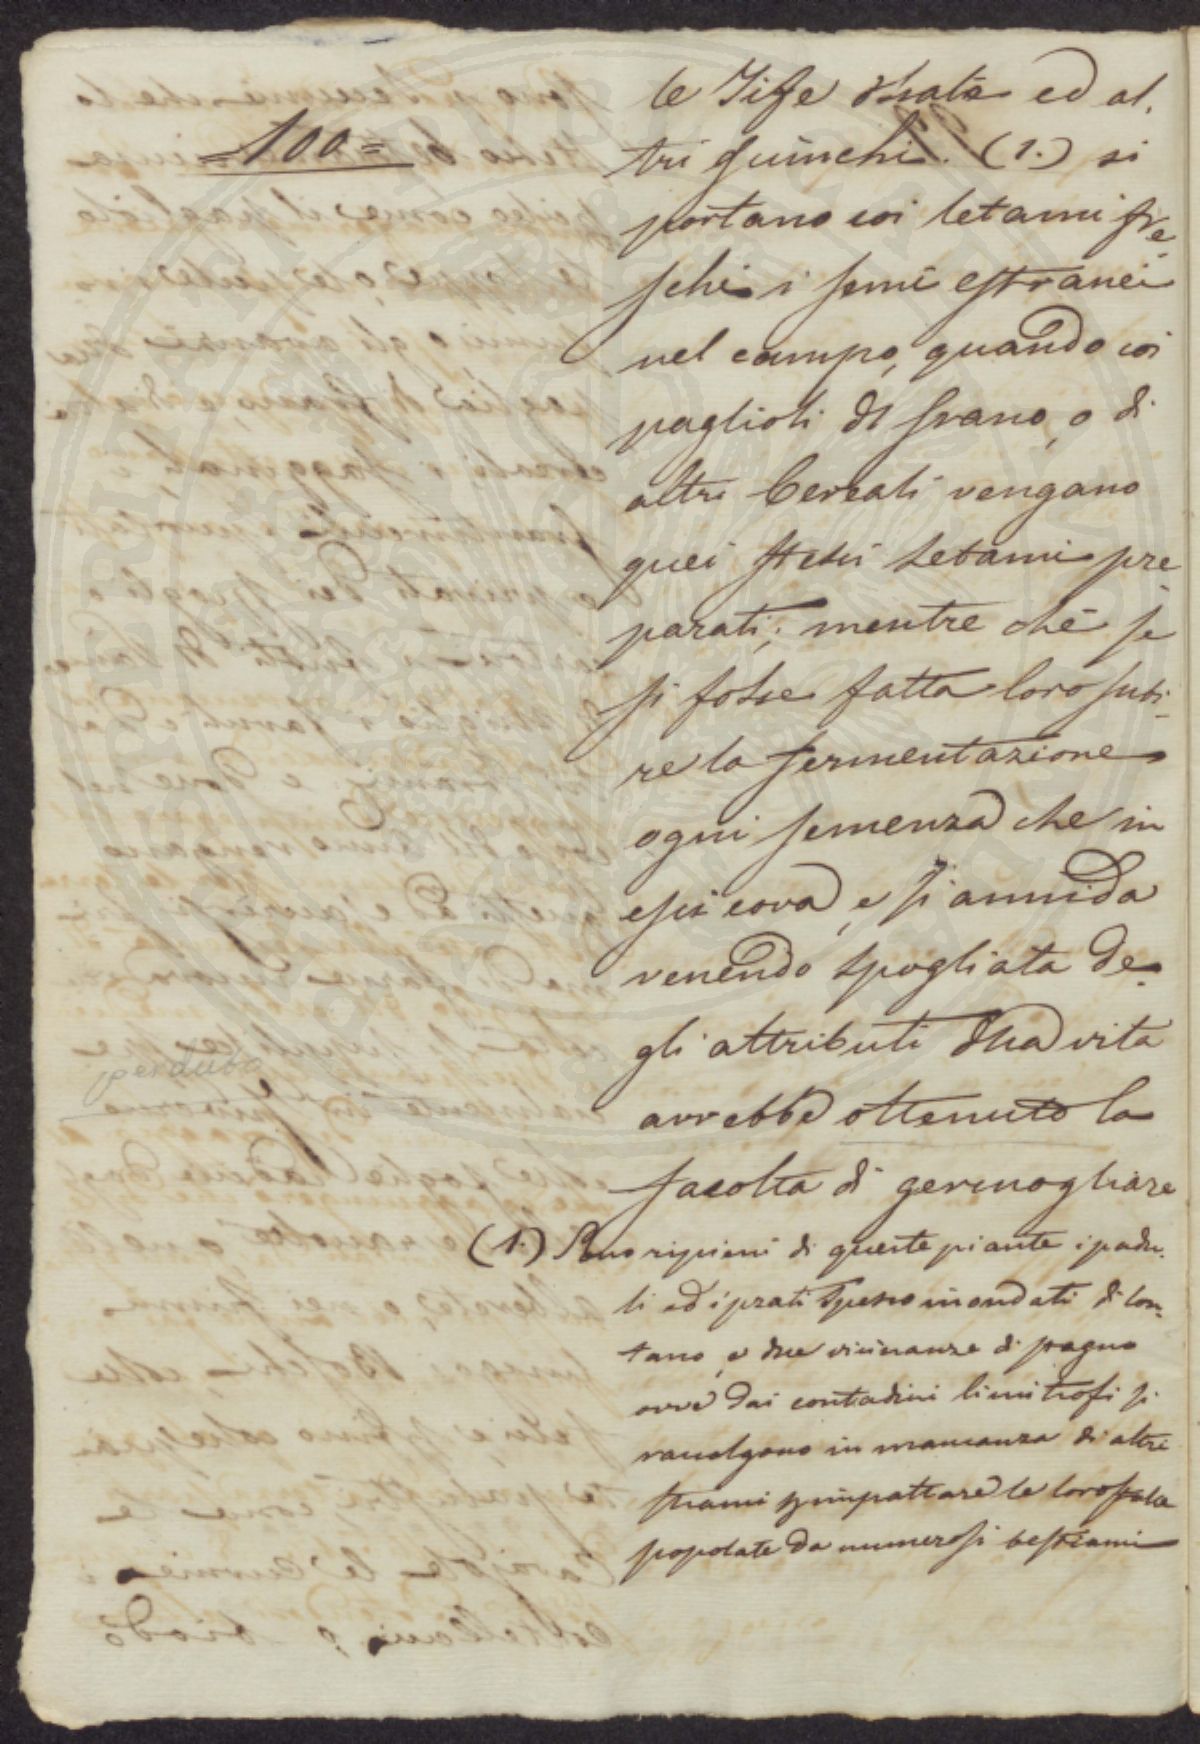 =100=
le Tife Thate ed al-
tri giunchi. (1.) si
portano coi letami fre
schi i semi estranei
nel campo, quando coi
paglioli di grano, o di
altri Cereali vengano
quei stessi letami pre
parati; mentre che se
si fosse fatta loro subi-
re la fermentazione
ogni semenza che in
essi cova, e si annida
venendo spogliata de-
gli attributi della vita
avrebbe ottenuto la
perduto
facolta di germogliare
(1.) Sono ripieni di queste piante i padu-
li ed i prati spesso inondati di lon-
tano, e delle vicinanze di stagno
ove dai contadini limitrofi si
raccolgono in mancanza di altri
strami per impattare le loro stalle
popolate da numerosi bestiami